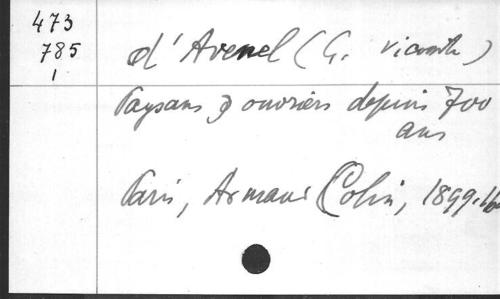 473
785
1
d'Avenel (G. vicomte)
Paysans & ouvriers depuis 700
ans
Paris, Armand Colin, 1899.